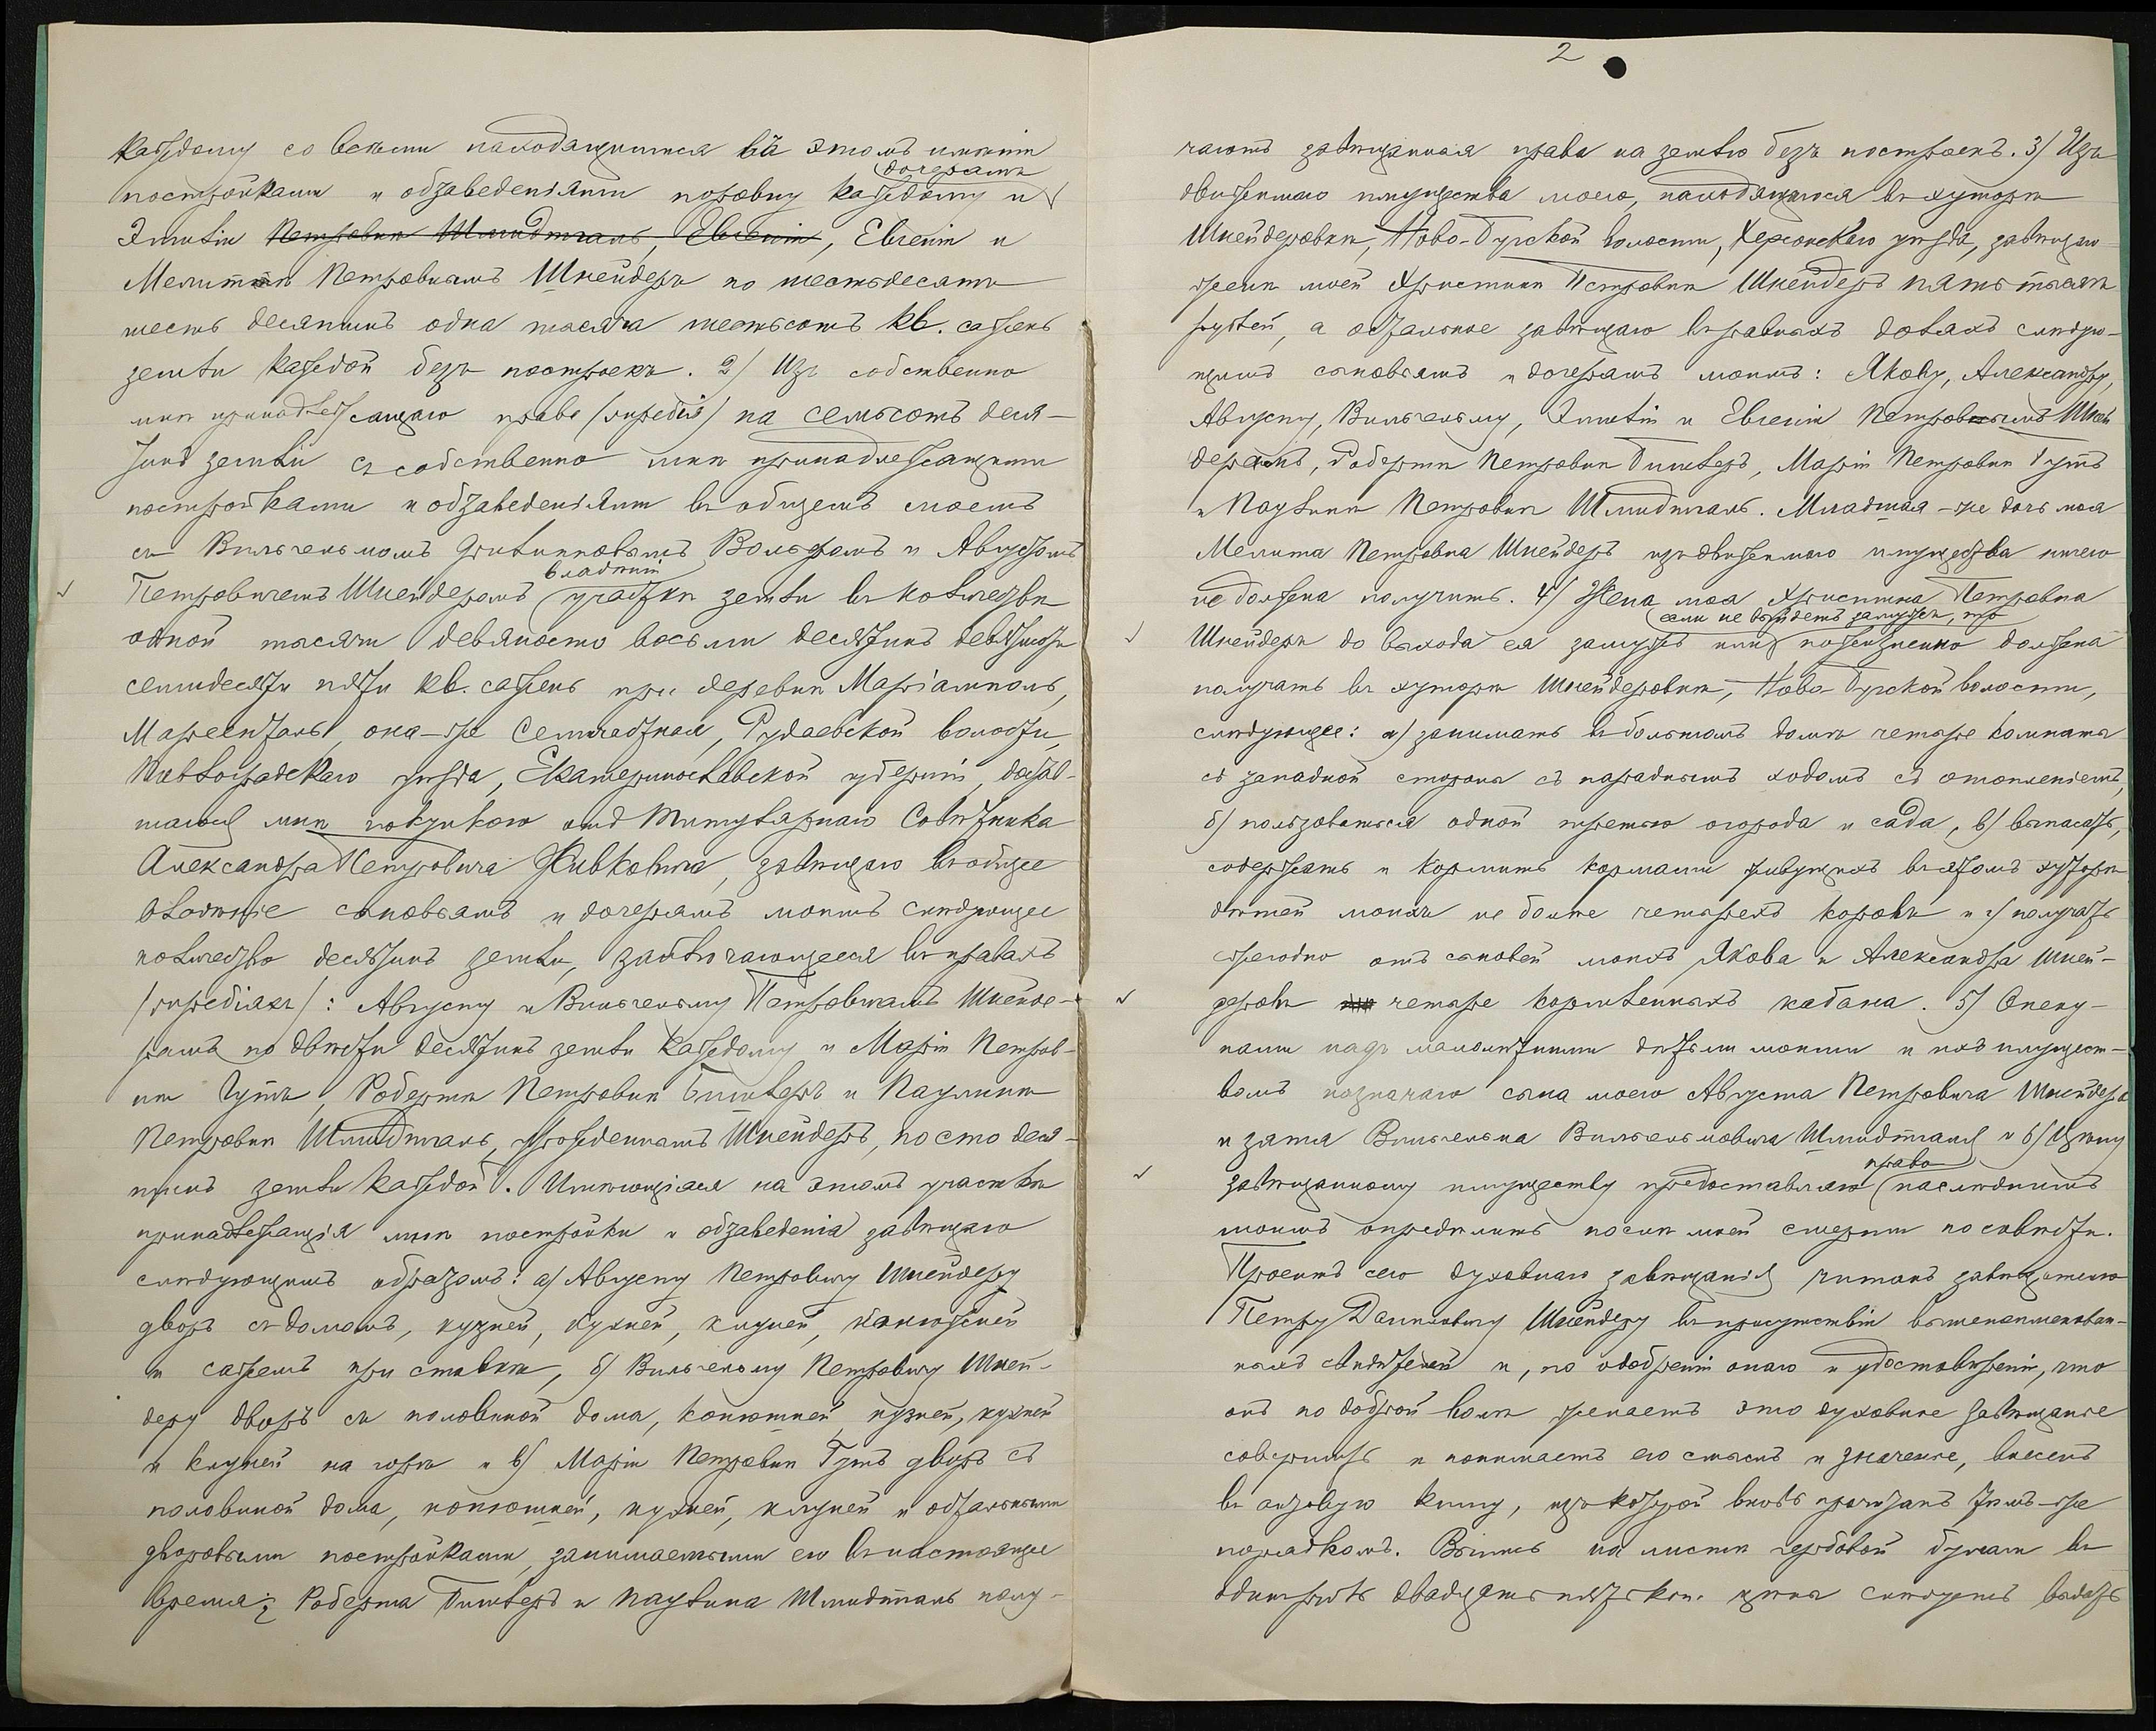 каждому со всѣми находящимися въ этомъ имѣніи
постройками и обзаведеніями поровну каждому и
дочерямъ
Эмиліи Петровнѣ Шмидтгаль, Евгеніи, Евгеніи и
Мелиттѣ Петровнамъ Шнейдеръ по шестьдесятъ
шесть десятинъ одна тысяча шестьсотъ кв. сажень
земли каждой безъ построекъ. 2) Изъ собственно
мнѣ принадлежащаго права (жребія) на семьсотъ деся-
тинъ земли съ собственно мнѣ принадлежащими
постройками и обзаведеніями въ общемъ моемъ
съ Вильгельмомъ Вольфомъ и Августомъ
владѣніи
Петровичемъ Шнейдеромъ участкѣ земли въ количествѣ
одной тысячи девяносто восьми десятинъ девятисотъ
семидесяти пяти кв. сажень при деревнѣ Маріамполь,
Мариенталь, она-же Семчастная, Рудаевской волости,
Павлоградскаго уѣзда, Екатеринославской губерніи, достав-
шагося мнѣ покупкою отъ Титулярнаго Совѣтника
Александра Петровича Живковича, завѣщаю въ общее
владѣніе сыновьямъ и дочерямъ моимъ слѣдующее
количество десятинъ земли, заключающееся въ правахъ
(жребіяхъ): Августу и Вильгельму Петровичамъ Шнейде-
рамъ по двѣсти десятинъ земли каждому и Маріи Петров-
нѣ Гутъ, Робертѣ Петровнѣ Бишлеръ и Паулинѣ
Петровнѣ Шмидтгаль, урожденнымъ Шнейдеръ, по сто деся-
тинъ земли каждой. Имѣющіяся на этомъ участкѣ
принадлежащія мнѣ постройки и обзаведенія завѣщаю
слѣдующимъ образомъ: а) Августу Петровичу Шнейдеру
дворъ съ домомъ, кузней, кухней, клуней, конюшней
и сараемъ при ставкѣ, б) Вильгельму Петровичу Шней-
деру дворъ съ половиной дома, конюшней, кузней, кухней
и клуней на горѣ и в) Маріи Петровнѣ Гутъ дворъ съ
половиной дома, конюшней, кухней, клуней и остальными
дворовыми постройками, занимаемыми ею въ настоящее
время; Роберта Бишлеръ и Паулина Шмидтгаль полу-
2
чаютъ завѣщанныя права на землю безъ построекъ. 3) Изъ
движимаго имущества моего, находящагося въ хуторѣ
Шнейдеровкѣ, Ново-Бугской волости, Херсонскаго уѣзда, завѣщаю
женѣ моей Христинѣ Петровнѣ Шнейдеръ пять тысячъ
рублей, а остальное завѣщаю въ равныхъ доляхъ слѣдую-
щимъ сыновьямъ и дочерямъ моимъ: Якову, Александру,
Августу, Вильгельму, Эмиліи и Евгеніи Петровнымъ Шней-
дерамъ, Робертѣ Петровнѣ Бишлеръ, Маріи Петровнѣ Гутъ
и Паулинѣ Петровнѣ Шмидтгаль. Младшая-же дочь моя
Мелитта Петровна Шнейдеръ изъ движимаго имущества ничего
не должна получить. 4) Жена моя Христина Петровна
если не выйдетъ замужъ, то
Шнейдеръ до выхода ея замужъ или пожизненно должна
получать въ хуторѣ Шнейдеровкѣ, Ново-Бугской волости,
слѣдующее: а) занимать въ большомъ домѣ четыре комнаты
съ западной стороны съ параднымъ ходомъ съ отопленіемъ,
б) пользоваться одной третью огорода и сада, в) выпасать,
содержать и кормить кормами живущихъ въ этомъ хуторѣ
дѣтей моихъ не болѣе четырехъ коровъ и г) получать
ежегодно отъ сыновей моихъ Якова и Александра Шней-
деровъ четыре кормленныхъ кабана. 5) Опеку-
нами надъ малолѣтними дѣтьми моими и ихъ имущест-
вомъ назначаю сына моего Августа Петровича Шнейдера
и зятя Вильгельма Вильгельмовича Шмидтгаля и 6) Оцѣнку
право
завѣщанному имуществу предоставляю наслѣдникамъ
моимъ опредѣлить послѣ моей смерти по совѣсти.
Проектъ сего духовнаго завѣщанія читанъ завѣщателю
Петру Даниловичу Шнейдеру въ присутствіи вышепоименован-
ныхъ свидѣтелей и, по одобреніи онаго и удостовѣреніи, что
онъ по доброй волѣ желаетъ это духовное завѣщаніе
совершить и понимаетъ его смыслъ и значеніе, внесенъ
въ актовую книгу, изъ которой вновь прочитанъ тѣмъ-же
порядкомъ. Выпись на листѣ гербовой бумаги въ
одинъ руб. двадцать пять коп. цѣны слѣдуетъ выдать